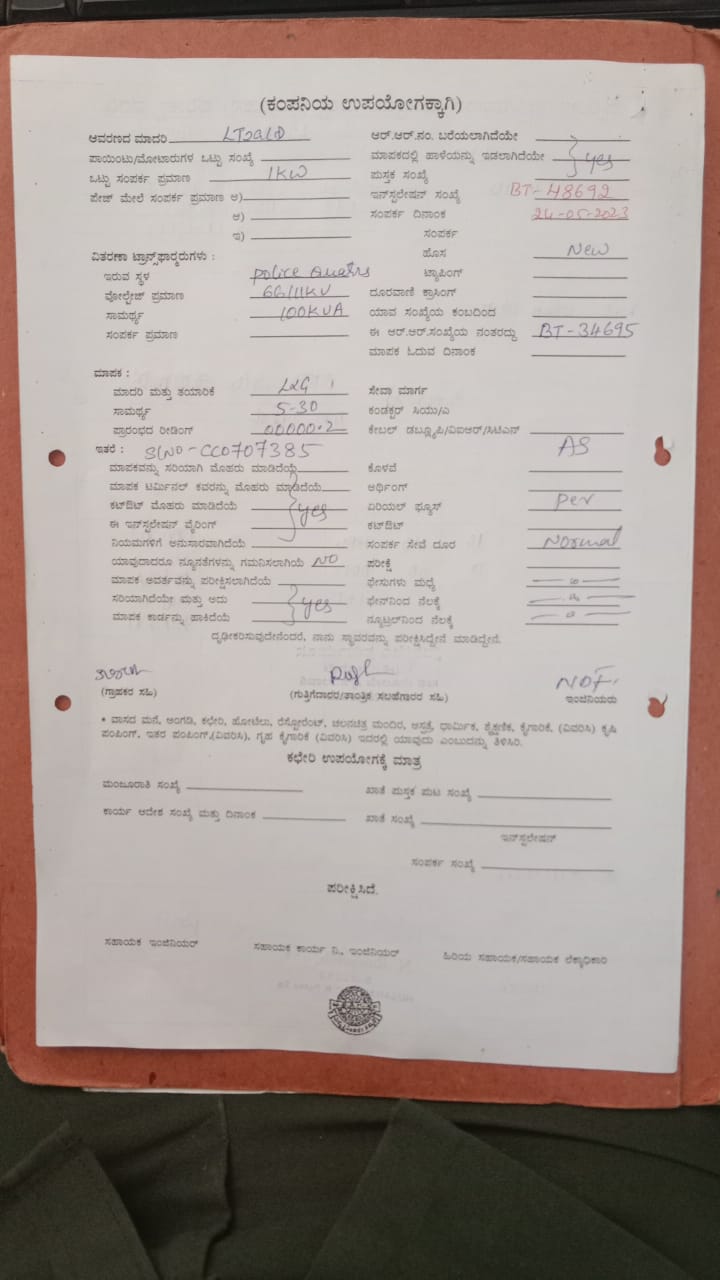 (ಕಂಪನಿಯ ಉಪಯೋಗಕ್ಕಾಗಿ)
ಆವರಣದ ಮಾದರಿ
ಆರ್.ಆರ್.ನಂ. ಬರೆಯಲಾಗಿದೆಯೇ
ಪಾಯಿಂಟು/ಮೋಟಾರುಗಳ ಒಟ್ಟು ಸಂಖ್ಯೆ
ಮಾಪಕದಲ್ಲಿ ಹಾಳೆಯನ್ನು ಇಡಲಾಗಿದೆಯೇ yes
ಒಟ್ಟು ಸಂಪರ್ಕ ಪ್ರಮಾಣ 1KW
ಪುಸ್ತಕ ಸಂಖ್ಯೆ
ಪೇಜ್ ಮೇಲೆ ಸಂಪರ್ಕ ಪ್ರಮಾಣ ಅ)
ಇನ್ಸ್ಟಲೇಷನ್ ಸಂಖ್ಯೆ BT-48692
ಆ)
ಸಂಪರ್ಕ ದಿನಾಂಕ 24-05-2023
ಇ)
ಸಂಪರ್ಕ
ವಿತರಣಾ ಟ್ರಾನ್ಸ್‌ಫಾರ್ಮರುಗಳು :
ಹೊಸ New
ಇರುವ ಸ್ಥಳ police
ಟ್ಯಾಪಿಂಗ್
ವೋಲ್ಟೇಜ್ ಪ್ರಮಾಣ 66/11KV
ದೂರವಾಣಿ ಕ್ರಾಸಿಂಗ್
ಸಾಮರ್ಥ್ಯ 100KVA
ಯಾವ ಸಂಖ್ಯೆಯ ಕಂಬದಿಂದ
ಸಂಪರ್ಕ ಪ್ರಮಾಣ
ಈ ಆರ್.ಆರ್.ಸಂಖ್ಯೆಯ ನಂತರದ್ದು BT-34695
ಮಾಪಕ ಓದುವ ದಿನಾಂಕ
ಮಾಪಕ :
ಮಾದರಿ ಮತ್ತು ತಯಾರಿಕೆ L&G
ಸೇವಾ ಮಾರ್ಗ
ಸಾಮರ್ಥ್ಯ 5-30
ಕಂಡಕ್ಟರ್ ಸಿಯು/ಎ
ಪ್ರಾರಂಭದ ರೀಡಿಂಗ್ 00000.2
ಕೇಬಲ್ ಡಬ್ಲ್ಯೂಪಿ/ವಿಐಆರ್/ಸಿಟಿಎಸ್
ಇತರೆ : Sl NO - CC0707385
AS
ಮಾಪಕವನ್ನು ಸರಿಯಾಗಿ ಮೊಹರು ಮಾಡಿದೆಯೆ
ಕೊಳವೆ
ಮಾಪಕ ಟರ್ಮಿನಲ್ ಕವರನ್ನು ಮೊಹರು ಮಾಡಿದೆಯೆ
ಅರ್ಥಿಂಗ್
ಕಟ್‌ಔಟ್ ಮೊಹರು ಮಾಡಿದೆಯೆ yes
ಏರಿಯಲ್ ಫ್ಯೂಸ್ per
ಈ ಇನ್ಸ್ಟಲೇಷನ್ ವೈರಿಂಗ್
ಕಟ್‌ಔಟ್
ನಿಯಮಗಳಿಗೆ ಅನುಸಾರವಾಗಿದೆಯೆ
ಸಂಪರ್ಕ ಸೇವೆ ದೂರ Normal
ಯಾವುದಾದರೂ ನ್ಯೂನತೆಗಳನ್ನು ಗಮನಿಸಲಾಗಿಯೆ NO
ಪರೀಕ್ಷೆ
ಮಾಪಕ ಅವರ್ತವನ್ನು ಪರೀಕ್ಷಿಸಲಾಗಿದೆಯೆ
ಫೇಸುಗಳು ಮಧ್ಯೆ
ಸರಿಯಾಗಿದೆಯೇ ಮತ್ತು ಅದು yes
ಫೇಸ್‌ನಿಂದ ನೆಲಕ್ಕೆ
ಮಾಪಕ ಕಾರ್ಡನ್ನು ಹಾಕಿದೆಯೆ
ನ್ಯೂಟ್ರಲ್‌ನಿಂದ ನೆಲಕ್ಕೆ
ದೃಢೀಕರಿಸುವುದೇನೆಂದರೆ, ನಾನು ಸ್ಥಾವರವನ್ನು ಪರೀಕ್ಷಿಸಿದ್ದೇನೆ ಮಾಡಿದ್ದೇನೆ.
(ಗ್ರಾಹಕರ ಸಹಿ)
(ಗುತ್ತಿಗೆದಾರರ/ತಾಂತ್ರಿಕ ಸಲಹೆಗಾರರ ಸಹಿ)
ಇಂಜಿನಿಯರು
* ವಾಸದ ಮನೆ, ಅಂಗಡಿ, ಕಛೇರಿ, ಹೋಟೆಲು, ರೆಸ್ಟೋರೆಂಟ್, ಚಲನಚಿತ್ರ ಮಂದಿರ, ಆಸ್ಪತ್ರೆ, ಧಾರ್ಮಿಕ, ಶೈಕ್ಷಣಿಕ, ಕೈಗಾರಿಕೆ, (ವಿವರಿಸಿ) ಕೃಷಿ
ಪಂಪಿಂಗ್, ಇತರ ಪಂಪಿಂಗ್,(ವಿವರಿಸಿ), ಗೃಹ ಕೈಗಾರಿಕೆ (ವಿವರಿಸಿ) ಇದರಲ್ಲಿ ಯಾವುದು ಎಂಬುದನ್ನು ತಿಳಿಸಿರಿ.
ಕಛೇರಿ ಉಪಯೋಗಕ್ಕೆ ಮಾತ್ರ
ಮಂಜೂರಾತಿ ಸಂಖ್ಯೆ
ಖಾತೆ ಪುಸ್ತಕ ಪುಟ ಸಂಖ್ಯೆ
ಕಾರ್ಯ ಆದೇಶ ಸಂಖ್ಯೆ ಮತ್ತು ದಿನಾಂಕ
ಖಾತೆ ಸಂಖ್ಯೆ
ಇನ್ಸ್ಟಲೇಷನ್
ಸಂಪರ್ಕ ಸಂಖ್ಯೆ
ಪರೀಕ್ಷಿಸಿದೆ.
ಸಹಾಯಕ ಇಂಜಿನಿಯರ್
ಸಹಾಯಕ ಕಾರ್ಯ ನಿ., ಇಂಜಿನಿಯರ್
ಹಿರಿಯ ಸಹಾಯಕ/ಸಹಾಯಕ ಲೆಕ್ಕಾಧಿಕಾರಿ